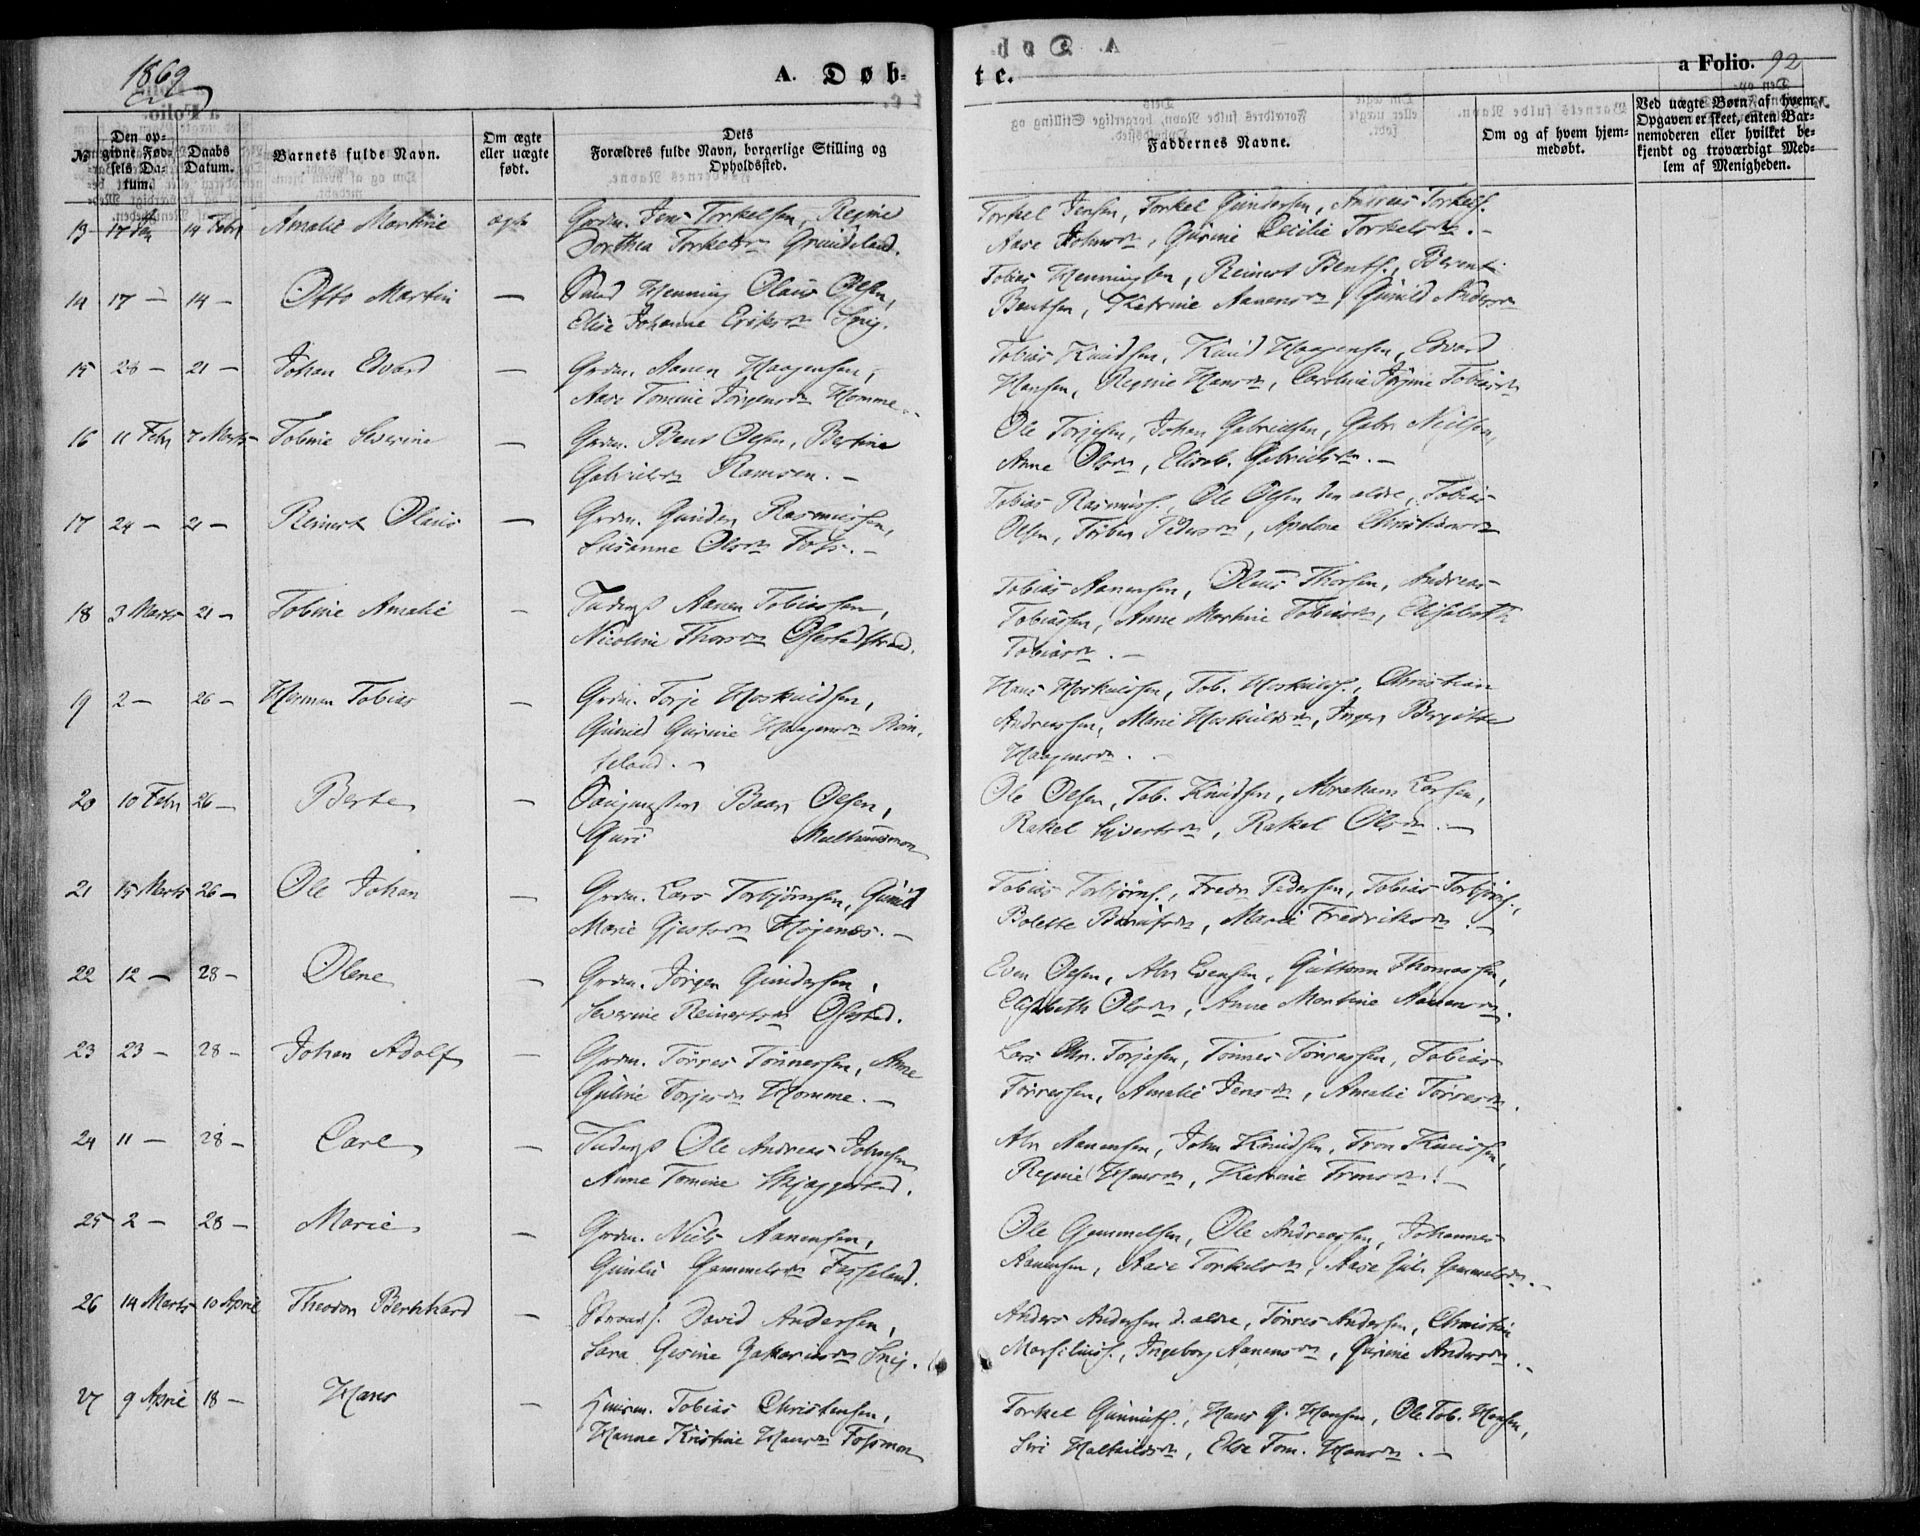 1869
A. Døb-
te.
a Folio. 92
No
Den opgivne Fødsels Datum.
Daabs Datum.
Barnets fulde Navn.
Om ægte eller uægte født.
Dets Forældres fulde Navn, borgerlige Stilling og Opholdssted.
Faddernes Navne.
Om og af hvem hjemmedøbt.
Ved uægte Børn af hvem Opgaven er skeet, enten Barnemoderen eller hvilket bekjendt og troværdigt Medlem af Menigheden.
13 17 Jan 14 Febr Amalie Martine ægte Grdm. Jens Torkelsen, Regine
Dorthea Torkelsdn Grundeland.
Torkel Jensen, Torkel Gundersen, Andreas Torkels.
Aase Johnsdn, Gurine Cecilie Torkelsdn. -
14 17 - 14 - Otto Martin - Henning Olaus Olsen,
Elise Johanne Eriksdn Snig.
Tobias Henningsen, Reinert Bents., Berent
Bentsen, Katrine Aanensdn, Gunild Andersdn
15 28 - 21 - Johan Edvard - Grdm. Aanen Haagensen,
Aase Tomine Jørgensdn Homme. -
Tobias Knudsen, Knud Haagensen, Edvard
Hansen, Regine Hansdn, Caroline Jørgine Tobiasdn
16 11 Febr 7 Marts Tobine Severine - Grdm. Bent Olsen, Bertine
Gabrielsdn Ramsøen. -
Ole Torjesen, Johan Gabrielsen, Gabr. Nielsen,
Anne Olsdn, Elisab. Gabrielsdn. -
17 24 - 21 - Reinert Olaus - Grdm. Gunder Rasmussen,
Susanne Olsdn Foss. -
Tobias Rasmuss. Ole Olsen den ældre, Tobias
Olsen, Torbor Pedersdn, Apelone Christiansdn
18 3 Marts 21 - Tobine Amalie - Inderst Aanen Tobiassen,
Nicoline Thorsdn Ofsestadstrand.
Tobias Aanensen, Olaus Thorsen, Andreas
Tobiassen, Anne Martine Tobiasdn, Elisabeth
Tobiasdn. -
19 2 - 26 - Herman Tobias - Grdm. Torje Hoskuldsen,
Gunild Gurine Haagensdn Røm-
seland. -
Hans Hoskuldsen, Tob. Hoskulds., Christian
Andreassen, Marie Hoskuldsdn, Inger Birgitte
Haagensdn. -
20 10 Febr 26 - Berte - Baar Olsen,
Guri
Ole Olsen, Tob. Knudsen, Abraham Larsen,
Rakel Syvertsdn, Rakel Olsdn. -
21 15 Marts 26 - Ole Johan - Grdm. Lars Torbjørnsen, Gunild
Marie Gjestsdn Højenes. -
Tobias Torbjørns., Fredr. Pedersen, Tobias Torbjørns.,
Bolette, Marie Fredriksdn. -
22 12 - 28 - Olene - Grdm. Jørgen Gundersen,
Severine Reinertsdn Ofsestad.
Even Olsen, Abr. Evensen, Guttorm Thomassen,
Elisabeth Olsdn, Anne Martine Aanensdn.
23 23 - 28 - Johan Adolf - Grdm. Tørres Tønnessen, Anne
Guline Torjesdn Homme. -
Lars Chr. Torjesen, Tønnes Tørressen, Tobias
Tørressen, Amalie Jensdn, Amalie Tørresdn.
24 11 - 28 - Carl - Inderst Ole Andreas Johnsen
Anne Tomine Skjæggestad.
Abr Aanensen, John Knudsen, Tron Knudsen,
Regine Hansdn, Katrine Tronsdn. -
25 2 - 28 - Marie - Grdm. Niels Aanensen,
Gunlu Gammelsdn Fasseland.
Ole Gammelsen, Ole Andreassen, Johannes
Aanensen, Aase Torkelsdn, Aase Gul. Gammelsdn. -
26 14 Marts 10 April Theodor Bernhard - Strands. David Andersen,
Sara Gesine Zakariasdn Snig.
Anders Andersen d. ældre, Tønnes Andersen, Christian
Marselius., Ingeborg Aanensdn, Gurine Andersdn. -
27 9 April 18 - Hans - Huusm. Tobias Christensen,
Hanne Kristine Hansdn Fossmoen
Torkel Gunnufs., Hans G. Hansen, Ole Tob. Hansen,
Siri Halkildsdn, Else Tom. Hansdn. -